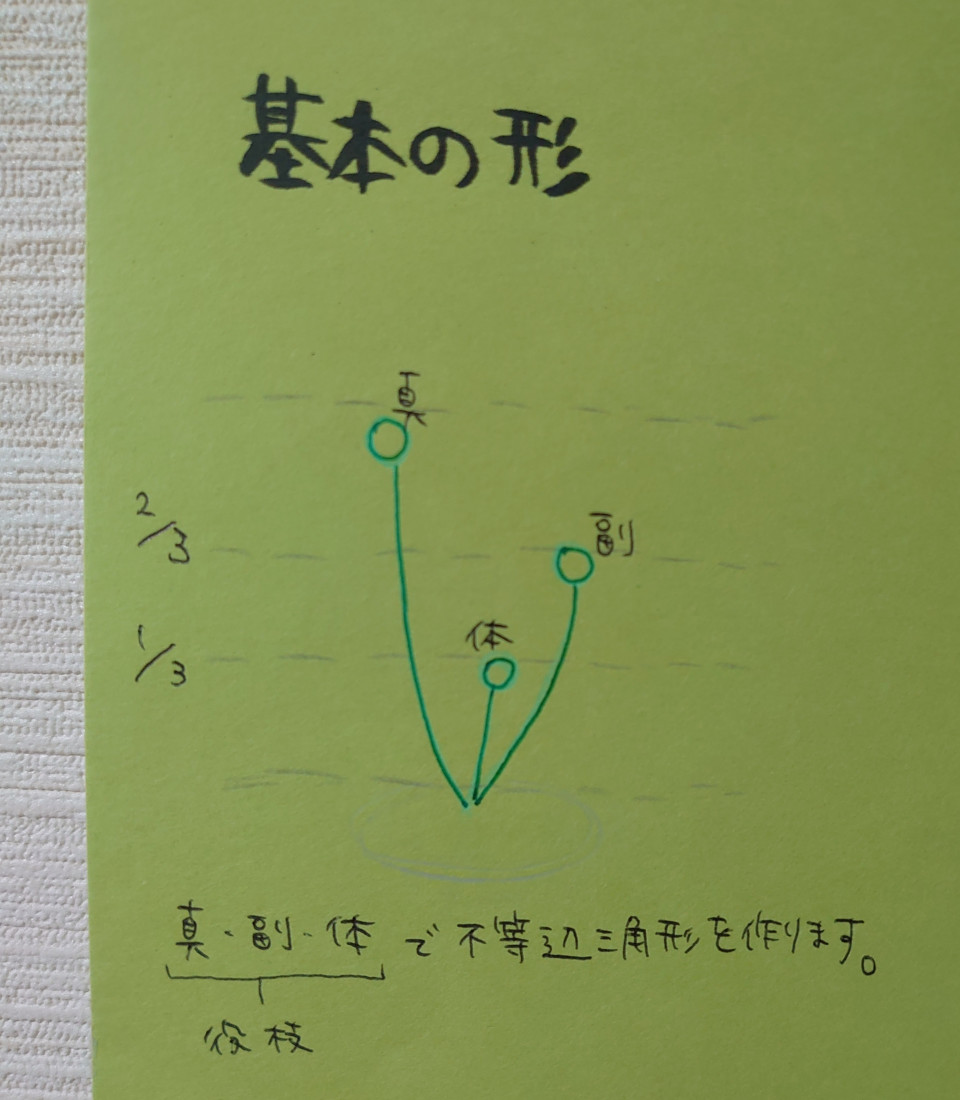 基本の形
真
2/3
副
1/3
体
真・副・体で不等辺三角形を作ります。
役枝